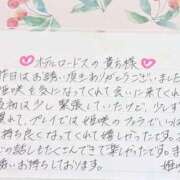 ホテルロードスの貴方様
昨日はお誘い頂きありがとうございました
姫咲を気になってくれて会いに来てくれ
最初は少し緊張していたけど、少しず
プレイでは姫咲のフェラでいっ
持ち良くなってくれて嬉しかったです。ま
お話しもたくさんできて楽しかったです。ま
お待ちしております。
姫咲